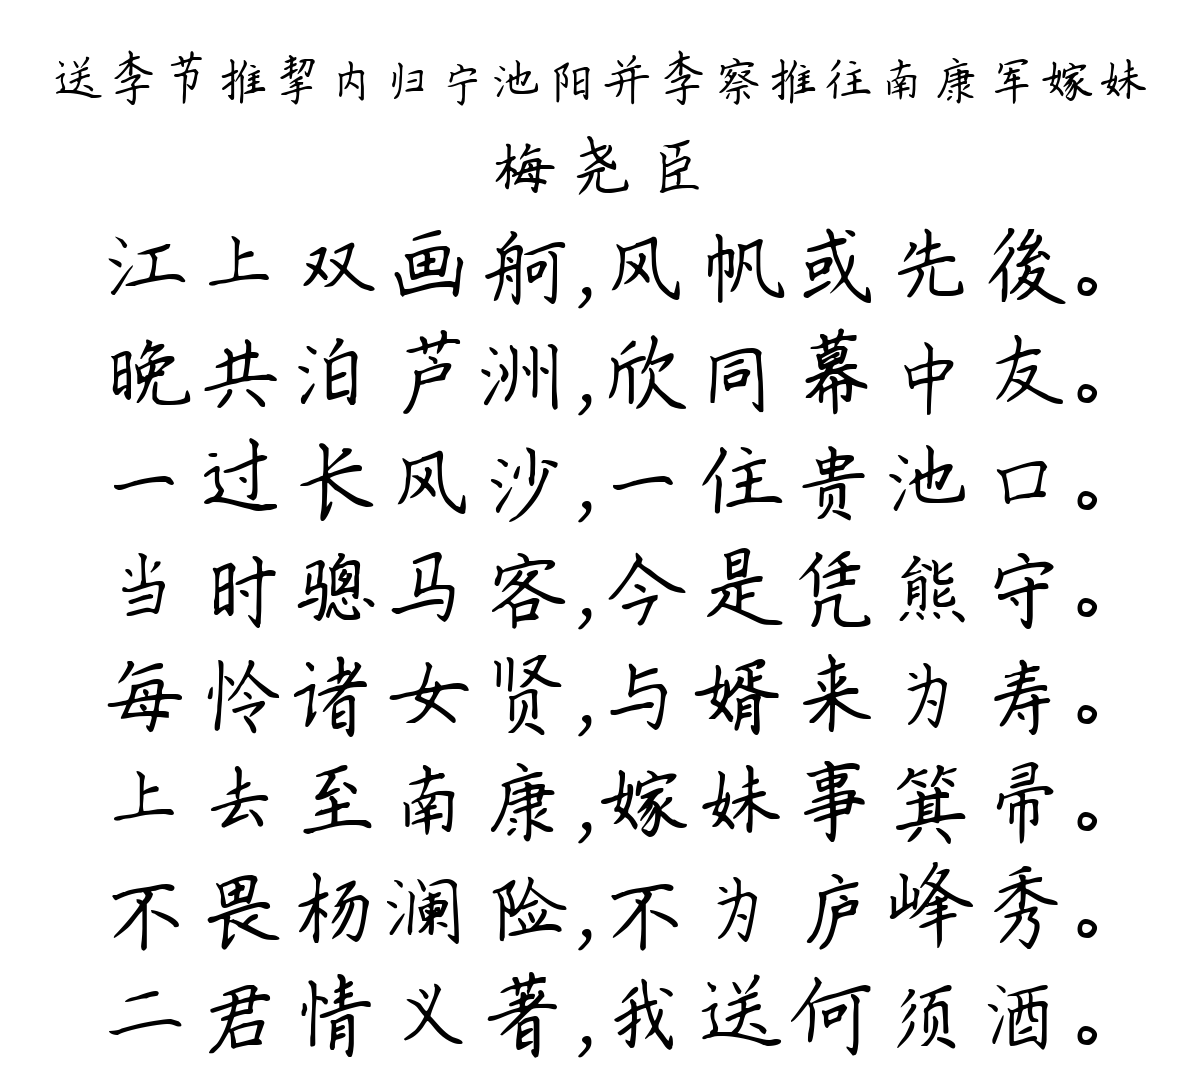 送李节推挈内归宁池阳并李察推往南康军嫁妹
梅尧臣
江上双画舸,风帆或先後。
晚共泊芦洲,欣同幕中友。
一过长风沙,一住贵池口。
当时骢马客,今是凭熊守。
每怜诸女贤,与婿来为寿。
上去至南康,嫁妹事箕帚。
不畏杨澜险,不为庐峰秀。
二君情义著,我送何须酒。